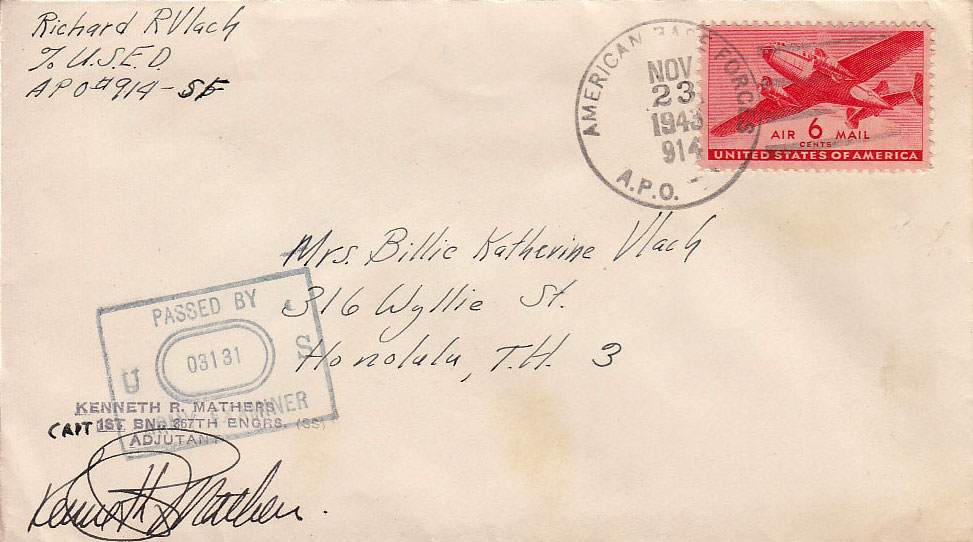 Richard R Vlach
℅ U.S.E.D.
APO #914-SF
AMERICAN BASE FORCES
NOV
23
1943
914
A.P.O.
AIR 6 MAIL
CENTS
UNITED STATES OF AMERICA
Mrs. Billie Katherine Vlach
316 Wyllie St.
Honolulu, T.H. 3
PASSED BY
U 03131 S
ARMY EXAMINER
KENNETH R. MATHERS
CAPT 1ST. BN. 367TH ENGRS. (SS)
ADJUTANT
Kenneth R Mathers.